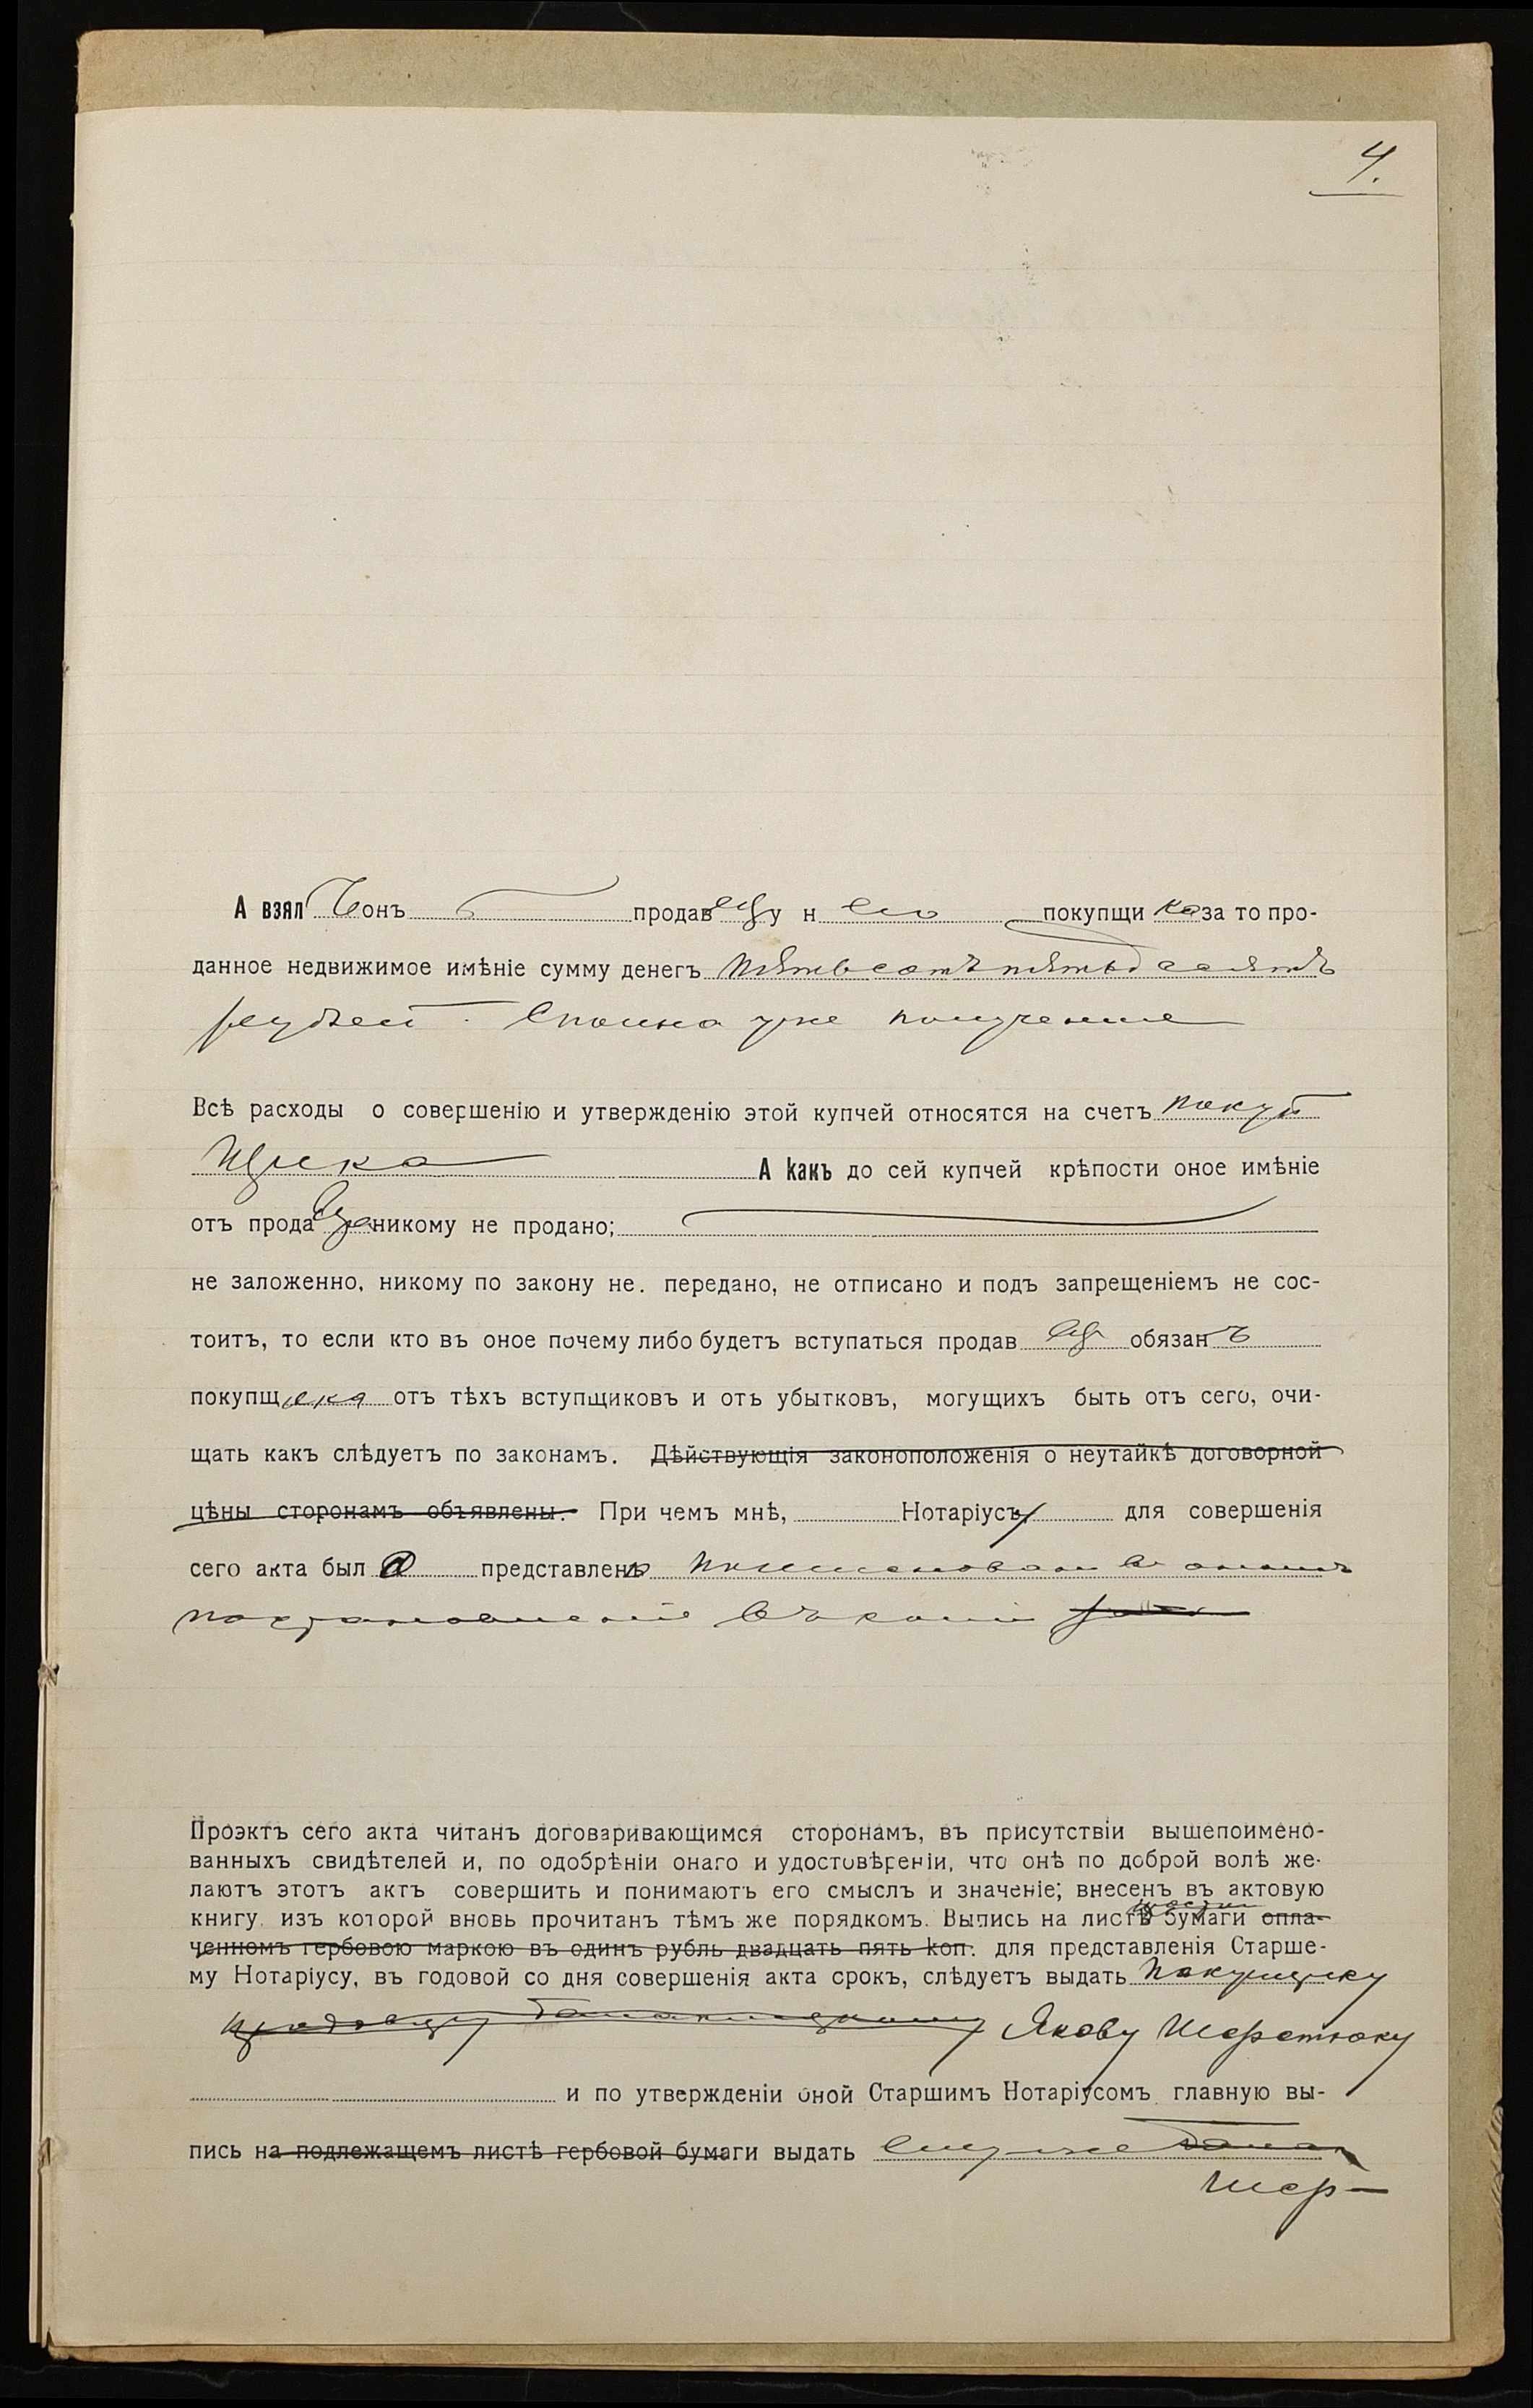 4.
А взялъ онъ продавецъ у н его покупщи ка за то про-
данное недвижимое имѣніе сумму денегъ пятьсотъ пятьдесятъ
рублей. Сполна уже полученные
Всѣ расходы о совершенію и утвержденію этой купчей относятся на счетъ покуп
щика А какъ до сей купчей крѣпости оное имѣніе
отъ прода вца никому не продано;
не заложенно, никому по закону не. передано, не отписано и подъ запрещеніемъ не сос-
тоитъ, то если кто въ оное почему либо будетъ вступаться продав ецъ обязан ъ
покупщ ика отъ тѣхъ вступщиковъ и отъ убытковъ, могущихъ быть отъ сего, очи-
щать какъ слѣдуетъ по законамъ. Дѣйствующія законоположенія о неутайкѣ договорной
цѣны сторонамъ объявлены. При чемъ мнѣ, Нотаріусу для совершенія
сего акта был а представлена
въ копіи
Проэктъ сего акта читанъ договаривающимся сторонамъ, въ присутствіи вышепоимено-
ванныхъ свидѣтелей и, по одобрѣніи онаго и удостовѣреніи, что онѣ по доброй волѣ же-
лаютъ этотъ актъ совершить и понимаютъ его смыслъ и значеніе; внесенъ въ актовую
книгу, изъ которой вновь прочитанъ тѣмъ же порядкомъ. Выпись на листѣ бумаги опла-
ченномъ гербовою маркою въ одинъ рубль двадцать пять коп. для представленія Старше-
му Нотаріусу, въ годовой со дня совершенія акта срокъ, слѣдуетъ выдать Покупщику
продавцу Якову Шереметюку
и по утвержденіи оной Старшимъ Нотаріусомъ главную вы-
пись на подлежащемъ листѣ гербовой бумаги выдать ему же
Шер-